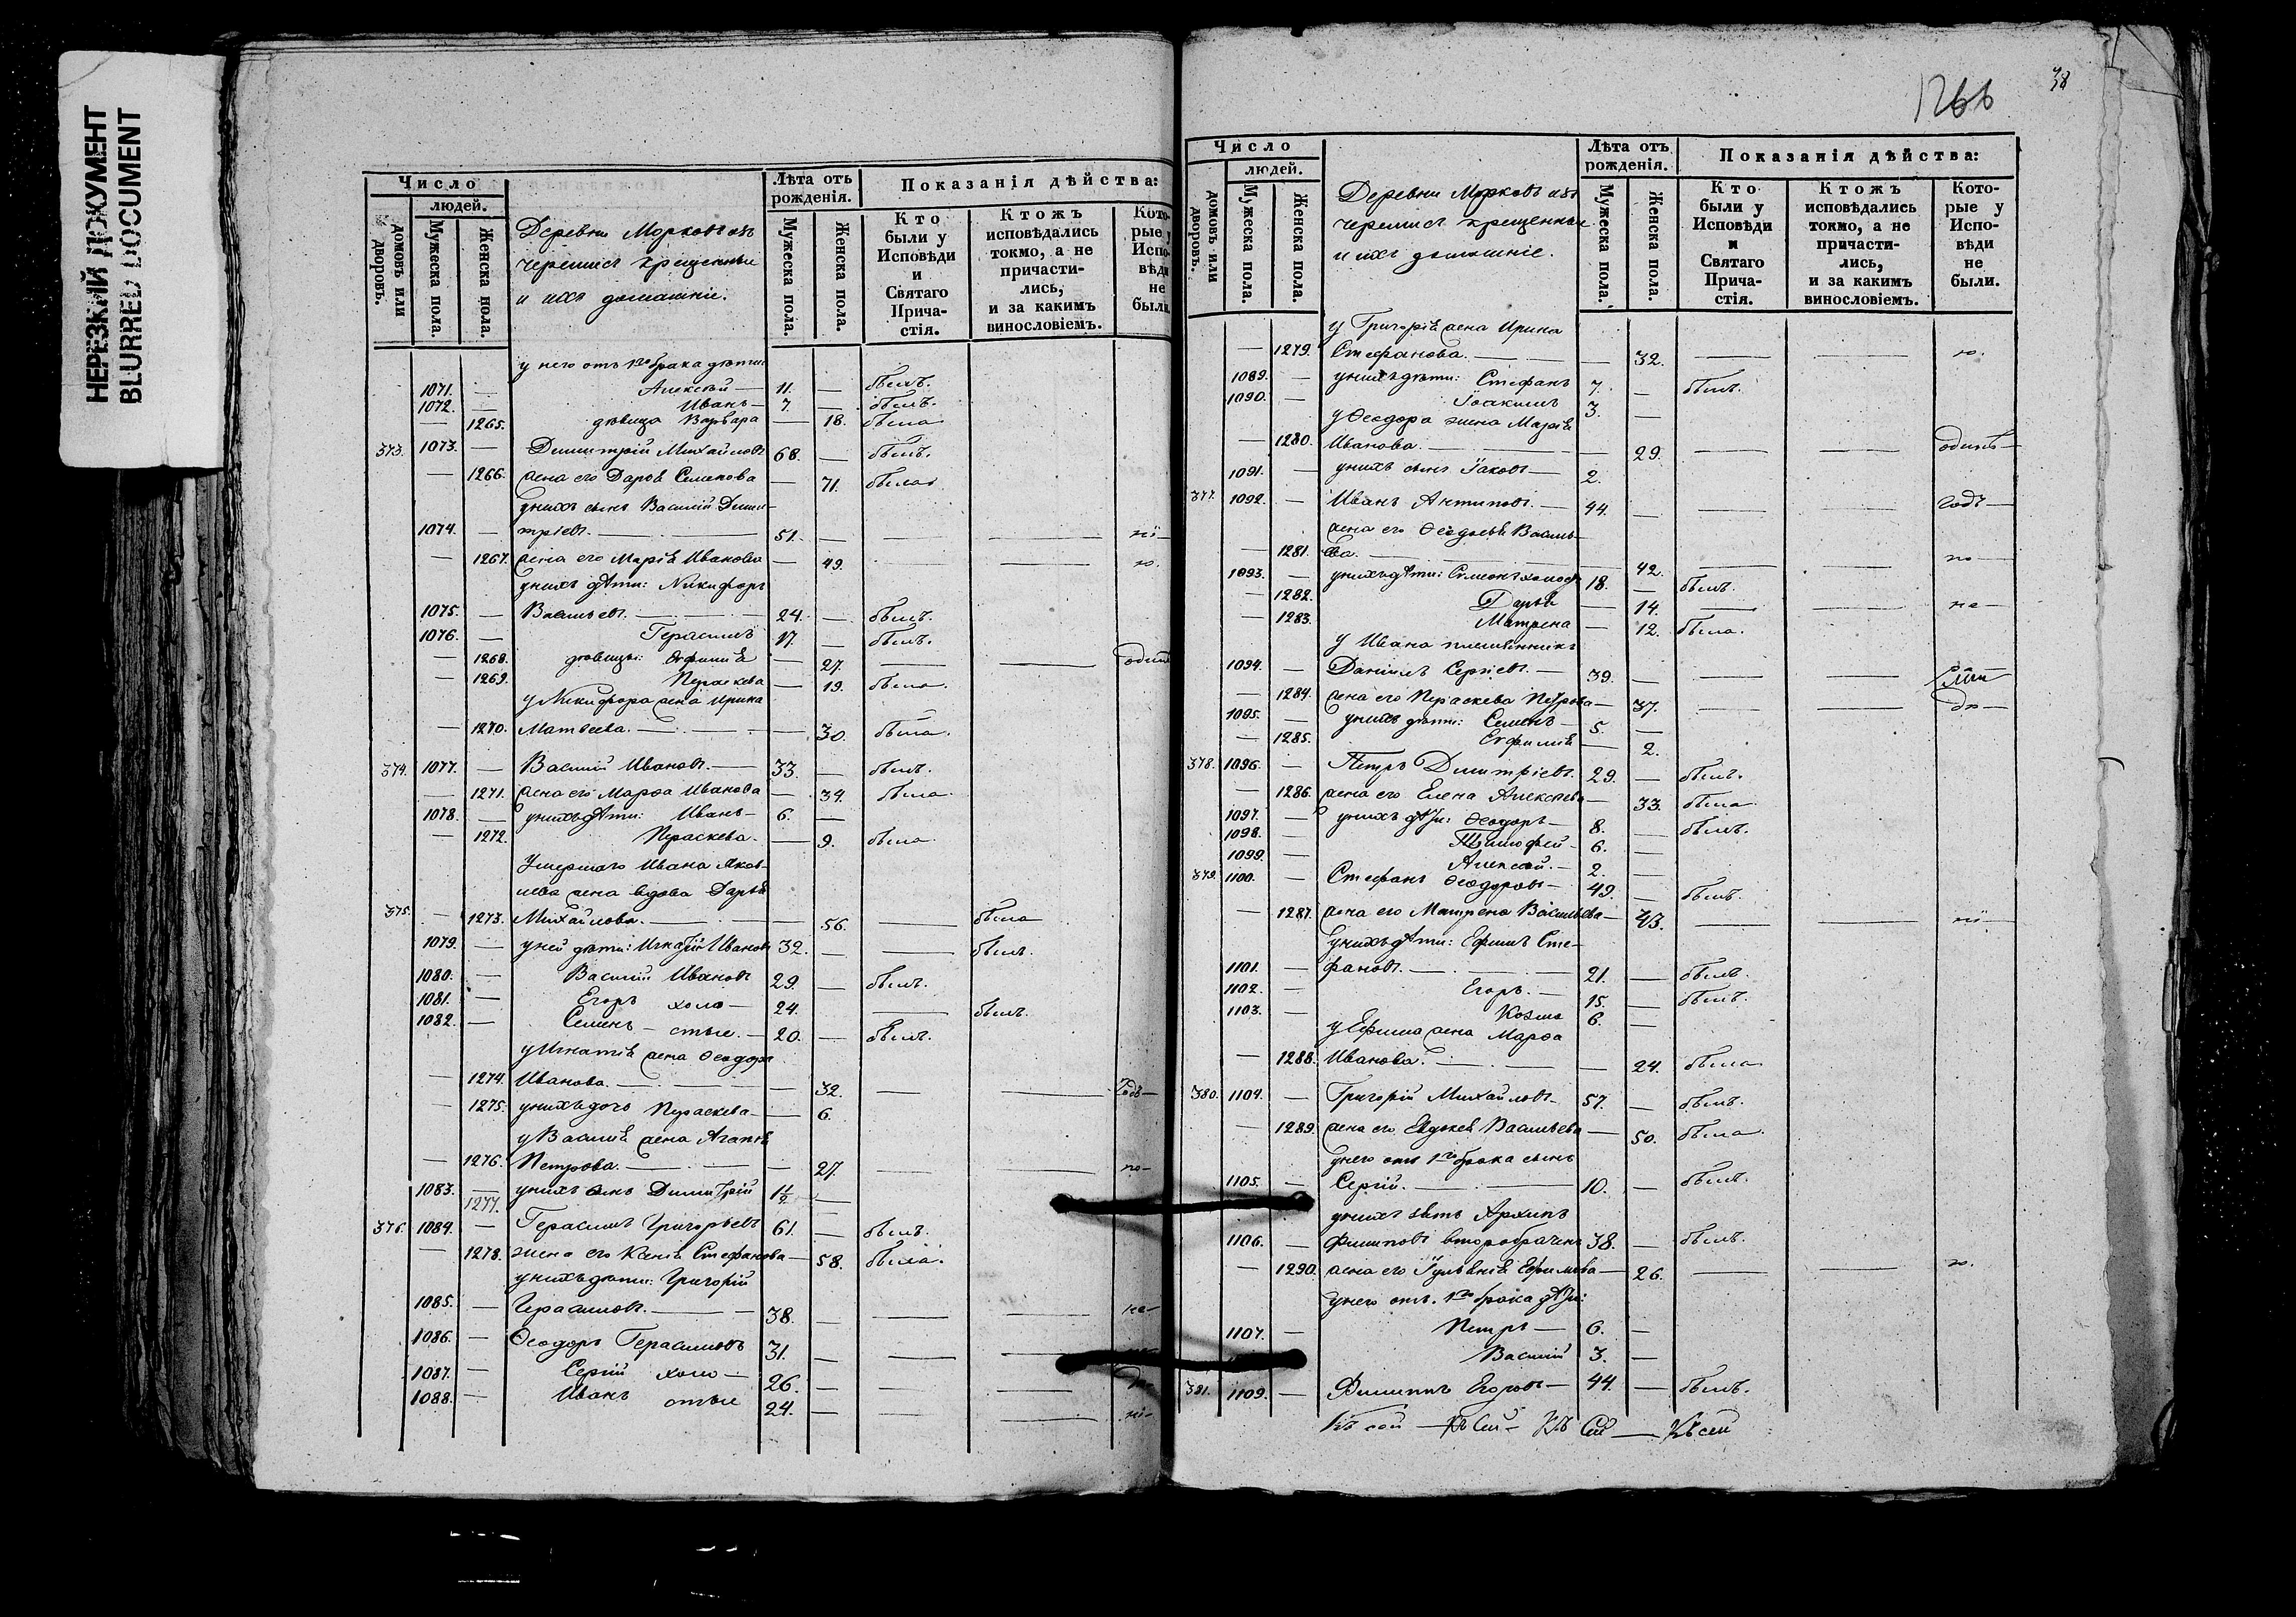 НЕРЕЗКИЙ ДОКУМЕНТ
BLURRED DOCUMENT
Число
людей.
домовъ или дворовъ.
Мужеска пола.
Женска пола.
Деревни
черемисъ крещенные
и ихъ домашніе.
Лѣта отъ рожденія.
Мужеска пола.
Женска пола.
Показанія дѣйства:
Кто были у Исповѣди и Святаго Причастія.
Ктожъ исповѣдались токмо, а не причастились, и за какимъ винословіемъ.
Которые у Исповѣди не были.
у него отъ 1го брака дѣти:
1071. — Алексѣй — 11. — былъ.
1072. — Иванъ — 7. — былъ.
— 1265. дѣвица Варвара — 18. была
373. 1073. — Димитрій Михайловъ 68. — былъ.
— 1266. жена его Дарья Семенова — 71. была
у нихъ сынъ Василій Дими-
1074. — тріевъ. — 51. —
— 1267. жена его Марія Иванова — 49. —
у нихъ дѣти: Никифоръ
1075. — Васильевъ. — 24. — былъ.
1076. — Герасимъ 17. — былъ.
— 1268. дѣвицы: Евфимія — 27. —
— 1269. Параскева — 19. была.
у Никифора жена Ирина
— 1270. Матвеева. — 30. была.
374. 1077. — Василій Ивановъ. — 33. — былъ.
— 1271. жена его Марѳа Иванова — 34. была
1078. — у нихъ дѣти: Иванъ — 6. —
— 1272. Параскева. — 9. была
Умершаго Ивана Яков-
лева жена вдова Дарья
375. — 1273. Михайлова. — 56. — была
1079. — у ней дѣти: Игнатій Ивановъ 32. — былъ.
1080. — Василій Ивановъ 29. — былъ.
1081. — Егоръ холо- 24. — былъ.
1082. — Семенъ — стые. — 20. — былъ.
у Игнатія жена Ѳеодора
— 1274. Иванова. — 32. —
— 1275. у нихъ дочь Параскева — 6.
у Василія жена Агапія
— 1276. Петрова. — 27 —
1083. — у нихъ сынъ Димитрій 1½ —
1277.
376. 1084. — Герасимъ Григорьевъ 61. — былъ.
— 1278. жена его Ксенія Стефанова — 58. была.
у нихъ дѣти: Григорій
1085. — Герасимовъ. — 38. —
1086. — Ѳеодоръ Герасимовъ 31. —
1087. — Сергій холо — 26. —
1088. — Иванъ стые 24. —
1266
38
Число
людей.
домовъ или дворовъ.
Мужеска пола.
Женска пола.
Деревни
черемисъ крещенные
и ихъ домашніе.
Лѣта отъ рожденія.
Мужеска пола.
Женска пола.
Показанія дѣйства:
Кто были у Исповѣди и Святаго Причастія.
Ктожъ исповѣдались токмо, а не причастились, и за какимъ винословіемъ.
Которые у Исповѣди не были.
у Григорія жена Ирина
— 1279. Стефанова. — 32. —
1089. — у нихъ дѣти: Стефанъ 7. — былъ.
1090. — Іоакимъ 3. —
у Ѳеодора жена Марія
— 1280. Иванова. — 29. —
1091. — у нихъ сынъ Іаковъ — 2.
377. 1092. — Иванъ Антиповъ. — 44. —
жена его Ѳеодосья Василь-
— 1281. ева. — 42. —
1093. — у нихъ дѣти: Симеонъ холос. 18. — былъ.
— 1282. Дарья — 14. —
— 1283. Матрена — 12. была.
у Ивана племянникъ
1094. — Даніилъ Сергіевъ. — 39. —
— 1284. жена его Параскева Петрова — 37. —
1095. — у нихъ дѣти: Семенъ — 5. —
— 1285. Евфимія — 2.
378. 1096. — Петръ Димитріевъ. 29. — былъ.
— 1286. жена его Елена Алексѣева — 33. была
1097. — у нихъ дѣти: Ѳеодоръ — 8. — былъ.
1098. — Тимофей — 6. —
1099. — Алексѣй. — 2. —
379. 1100. — Стефанъ Ѳеодоровъ — 49. — былъ.
— 1287. жена его Матрена Васильева — 43. —
у нихъ дѣти: Ефимъ Сте-
1101. — фановъ. — 21. — былъ.
1102. — Егоръ. — 15. — былъ.
1103. — Козма 6. —
у Ефима жена Марѳа
— 1288. Иванова. — 24. была
380. 1104. — Григорій Михайловъ — 57. — былъ.
— 1289. жена его Евдокея Васильева — 50. была.
у него отъ 1го брака сынъ
1105. — Сергій. — 10. — былъ.
у нихъ зять Архипъ
1106. — Филиповъ второбрачен. 38. — былъ.
— 1290. жена его Іульянія Ефимова — 26. —
у него отъ 1го брака дѣти:
1107. — Петръ — 6. —
Василій 3. —
381. 1109. — Филиппъ Егоровъ — 44. — былъ.
Къ сей — Къ сей — Къ сей — Къ сей